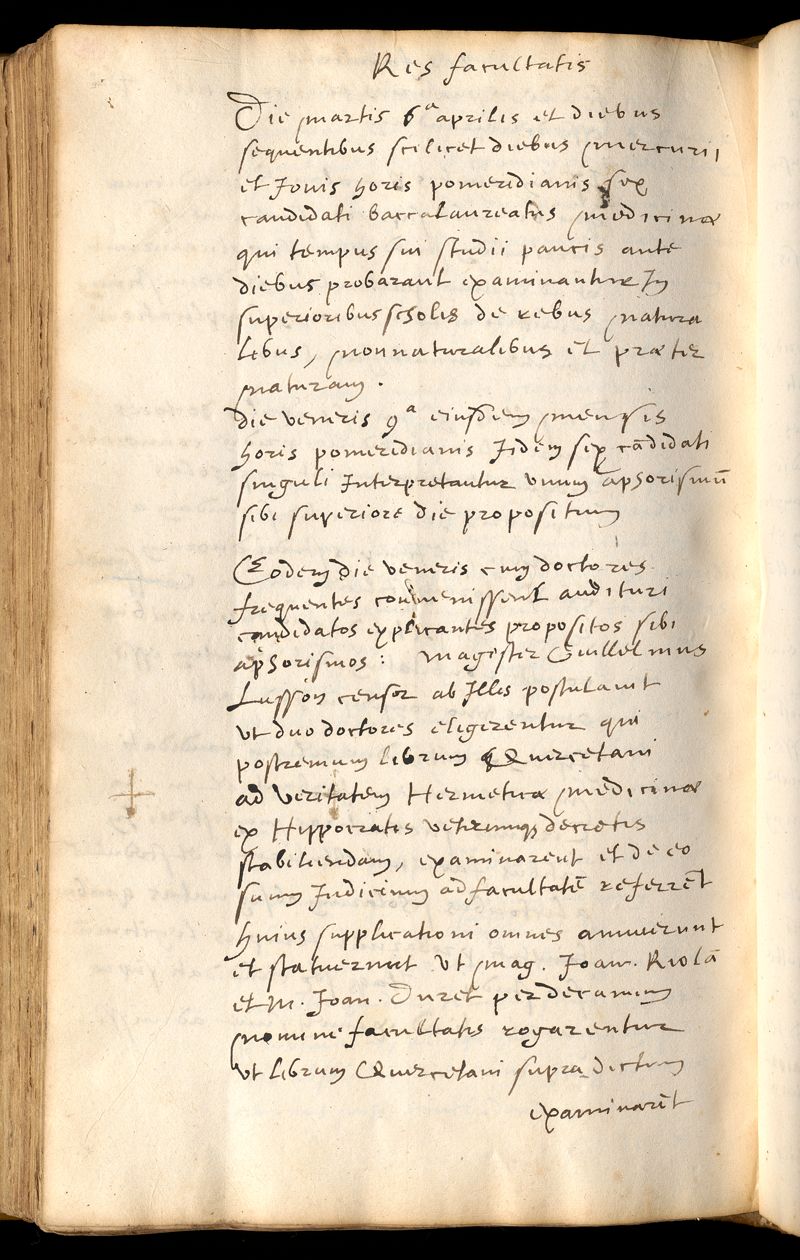 Res facultatis
Die martis 6ª aprilis et diebus
sequentibus scilicet diebus mercurii
et Jovis horis pomeridianis sex
candidati baccalaureatus medicinæ
qui tempus sui studii paucis ante
diebus probarant examinantur In
superioribus scholis de rebus natura
libus, nonnaturalibus et præter
naturam.
die veneris 9ª eiusdem mensis
horis pomeridianis Jidem sex cādidati
singuli Interpretantur unum aphorismū
sibi superiore die propositum
Eodem die veneris cum doctores
frequentes convenissent audituri
candidatos explicantes propositos sibi
aphorismos: magister Guillelmus
Lusson censor ab Illis postulavit
ut duo doctores eligerentur qui
postremum librum Quercetani
ad veritatem Hermeticæ medicinæ
ex Hippocratis veterumq; decretis
stabiliendam, examinarent et de eo
suum Judicium ad facultatē referrēt
huius supplicationi omnes annuerunt
et statuerunt ut mag. Joan. Riolā
et M. Joan. Duret per decanum
nomine facultatis rogarentur
ut librum Quercetani supra dictum
examinarēt